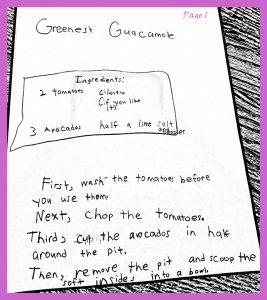 Page 1
Greenest Guacamole
Ingredients:
2 tomatoes cilantro
(if you like
it)
3 Avocados half a lime salt
First, wash the tomatoes before
you use them
Next, chop the tomatoes.
Third, cut the avocados in half
around the pit.
Then, remove the pit and scoop the
soft insides into a bowl